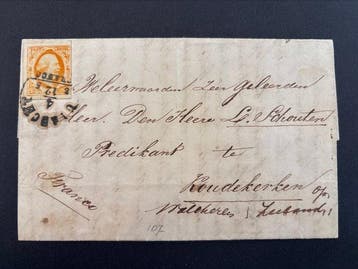 Weleerwaarden Zeer Geleerden
Heer. Den Heere L. Schouten
Predikant te
Koudekerken op
Walcheren Zeeland
Franco
107
FRANCO